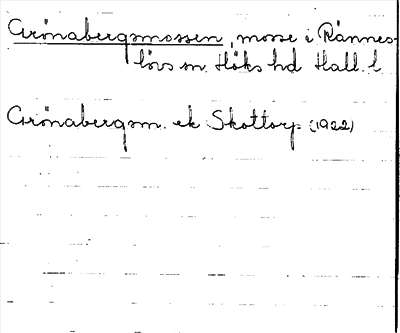 Grönabergsmossen, mosse i Rännes-
lövs sn. Höks hd Hall. l.
Grönabergsm. ek Skottorp (1922)